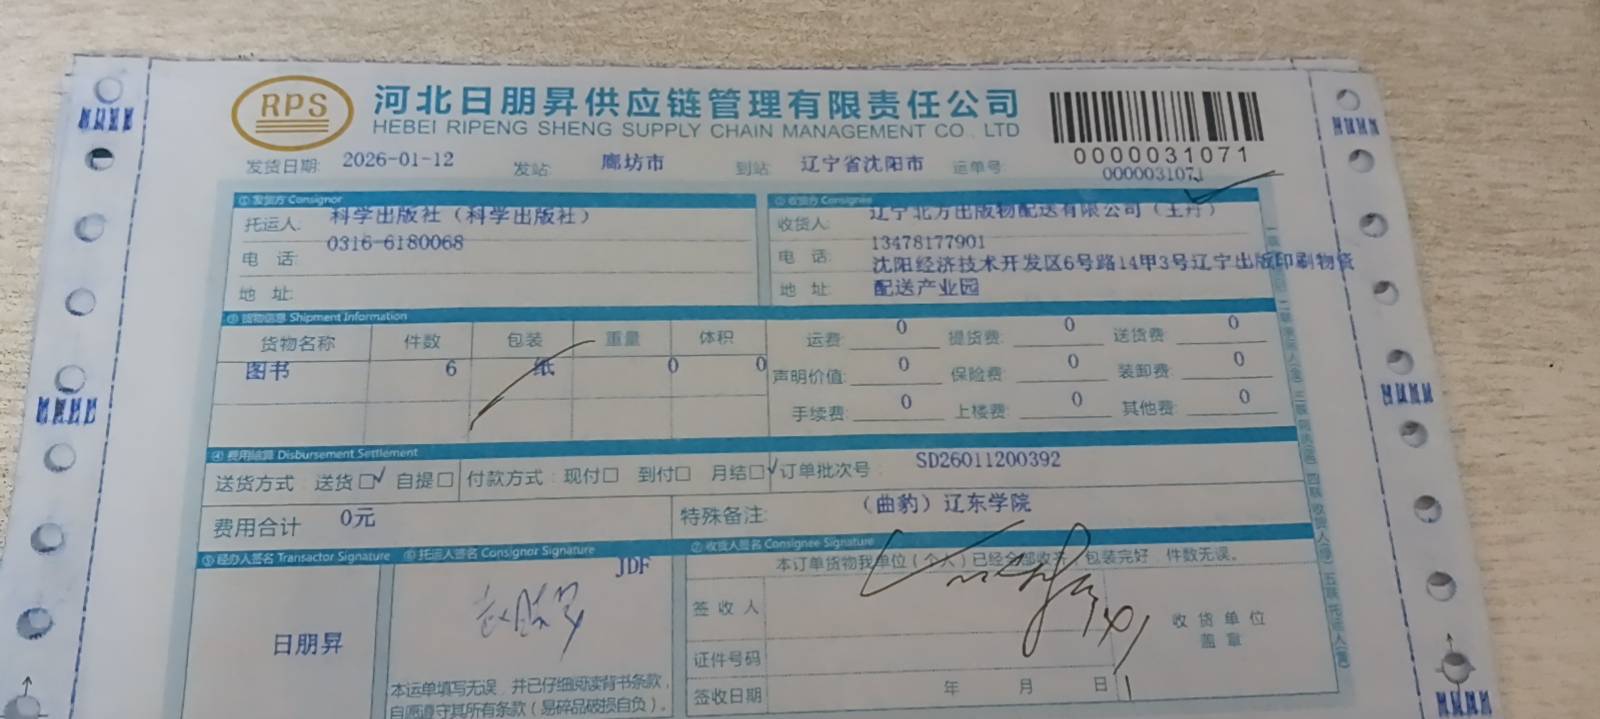 RPS
河北日朋昇供应链管理有限责任公司
HEBEI RIPENG SHENG SUPPLY CHAIN MANAGEMENT CO., LTD
0000031071
发货日期: 2026-01-12 发站: 廊坊市 到站: 辽宁省沈阳市 运单号: 0000031071
①发货方 Consignor ②收货方 Consignee
托运人: 科学出版社（科学出版社） 收货人: 辽宁北方出版物配送有限公司（王丹）
电 话: 0316-6180068 电 话: 13478177901
地 址: 地 址: 沈阳经济技术开发区6号路14甲3号辽宁出版印刷物资
配送产业园
③货物信息 Shipment Information
货物名称 件数 包装 重量 体积 运费: 0 提货费: 0 送货费: 0
图书 6 纸 0 0 声明价值: 0 保险费: 0 装卸费: 0
手续费: 0 上楼费: 0 其他费: 0
④费用结算 Disbursement Settlement
送货方式: 送货□√ 自提□ 付款方式: 现付□ 到付□ 月结□√ 订单批次号: SD26011200392
费用合计 0元 特殊备注: （曲豹）辽东学院
⑤经办人签名 Transactor Signature ⑥托运人签名 Consignor Signature ⑦收货人签名 Consignee Signature
JDF 本订单货物我单位（个人）已经全部收齐，包装完好，件数无误。
日朋昇 签收人 收货单位
盖章
证件号码
本运单填写无误，并已仔细阅读背书条款，
自愿遵守其所有条款（易碎品破损自负）。
签收日期 年 月 日